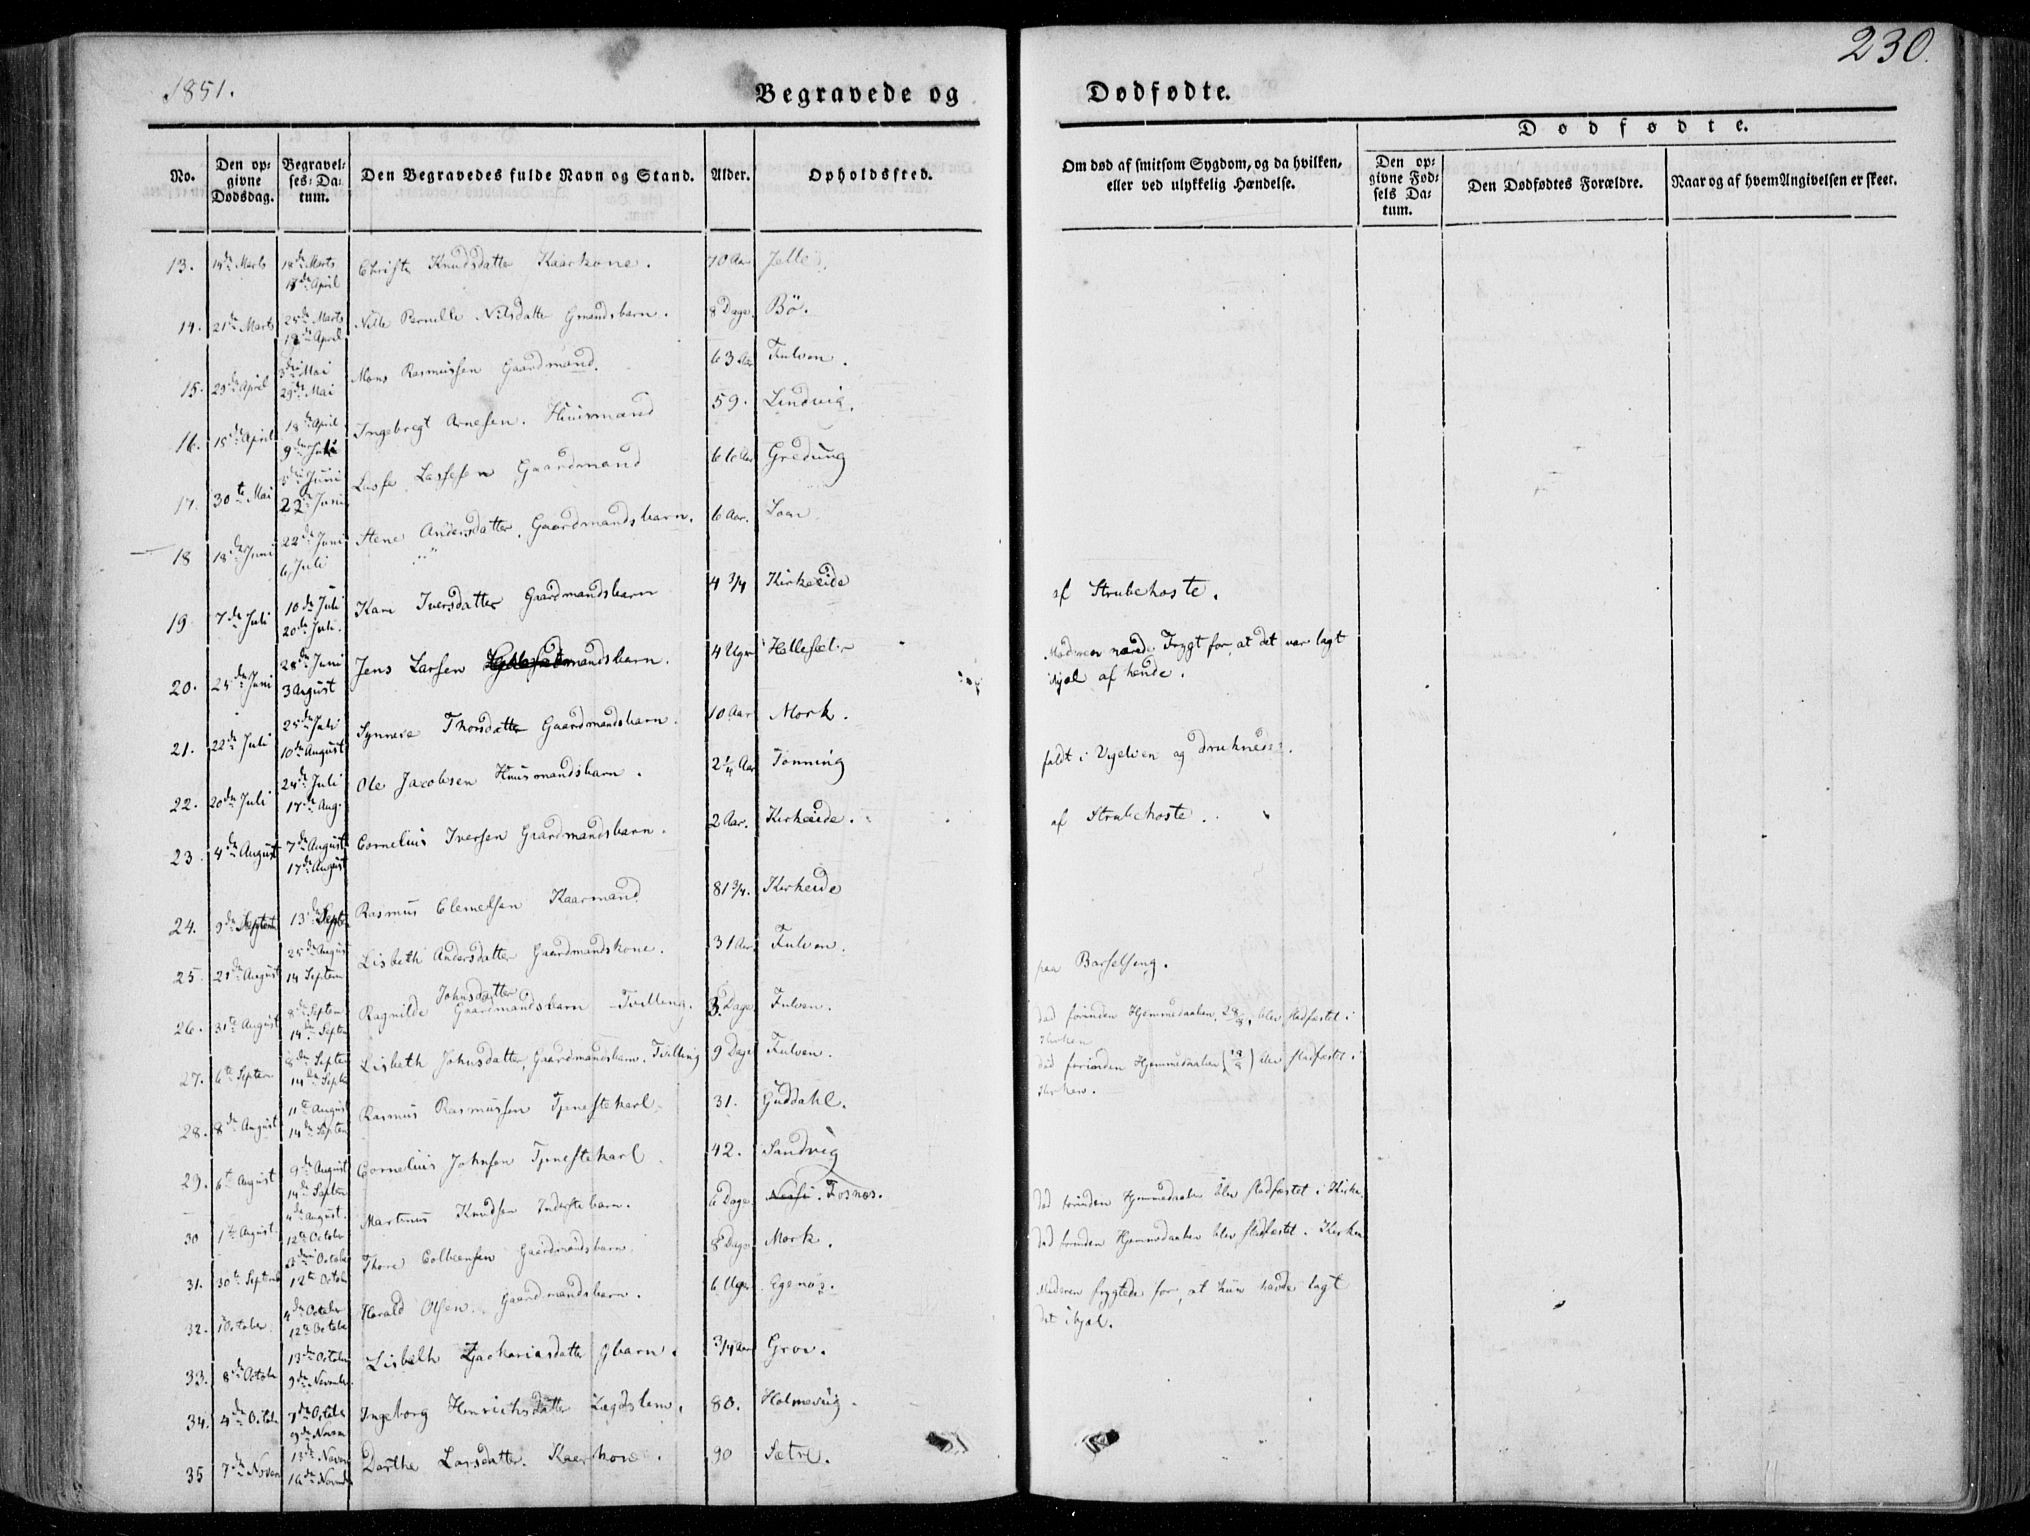 230.
1851.
Begravede og
Dødfødte.
Dødfødte.
No.
Den op-
givne
Dødsdag.
Begravel-
ses-Da-
tum.
Den Begravedes fulde Navn og Stand.
Alder.
Opholdssted.
Om død af smitsom Sygdom, og da hvilken,
eller ved ulykkelig Hændelse.
Den op-
givne Fød-
sels Da-
tum.
Den Dødfødtes Forældre.
Naar og af hvem Angivelsen er skeet.
13. 14de Marts 18de Marts Knudsdatter Kaarkone. 70 Aar
April
14. 21de Marts 25de Marts Pernelle Nilsdatter Gmandsbarn. 8 Dage. Bö.
18de April
15. 29de April Mai Mons Rasmussen Gaardmand. 63 Aar Fulven.
29de Mai
16. 15de April 18de April Ingebregt Arnesen. Huusmand 59. Lindvig.
9de
17. 30te Mai 5de Juni Lasse Lassesen Gaardmand 66 Aar Gredung
22de Juni
18 18de Juni 22de Juni Andersdatter, Gaardmandsbarn. 6 Aar. Loen
6 Juli
19 7de Juli 10de Juli Kari Iversdatter Gaardmandsbarn 4 3/4 Kirkeeide af Strubehoste.
20de Juli.
20. 25de Juni 28de Juni Jens Larsen mandsbarn. 4 Uger Hallesæt Moderen nærede Frygt for, at det var lagt
3 August ihjæl af hende.
21. 22de Juli 25de Juli Synneve Thorsdatter Gaardmandsbarn. 10 Aar Mork.
10de August
22. 20de Juli 24de Juli Ole Jacobsen Huusmandsbarn. 2 1/4 Aar Tonning faldt i og druknede.
17de Aug.
23. 4de August 7de August Cornelius Iversen Gaardmandsbarn. 2 Aar. Kirkeeide. af Strubehoste.
17de August
24. 9de Septem 13de Septe Rasmus Clemetsen Kaarmand 81 3/4. Kirkeide
25. 21de August 25de August Lisbeth Andersdatter Gaardmandskone. 31 Aar Fulven. paa Barselseng.
14 Septem
26. 31te August 8de Septem Ragnilde Johnsdatter Gaardmandsbarn Tvilling. 3. Dage Fulven. död forinden Hjemmedaaben, 28/8, blev stadfæstet i
14de Septe Kirken
27. 6te Septem 8de Septem Lisbeth Johnsdatter, Gaardmandsbarn. Tvilling 9 Dage Fulven. död forinden Hjemmedaaben blev stadfæstet i
14de Septe Kirken.
28. 8de August 11te August Rasmus Rasmussen Tjenestekarl 31. Guddahl.
14de Septem
29. 6te August 9de August Cornelius Johnsen Tjenestekarl 42. Sandvig
14de Septem
30 1te August 4de August. Martinus Knudsen Inderstebarn. 6 Dage Fosnæs. död forinden Hjemmedaaben blev stadfæstet i Kirke
12te October
31. 30te Septemb October Thore Colbeensen Gaardmandsbarn 8 Dage Mork. död forinden Hjemmedaaben blev stadfæstet i Kirken
12te Octobe
32. October 4de October Harald Olsen. Gaardmandsbarn. 6 Uger Egenæs. Moderen frygtede for, at hun havde lagt
12te Octobe det ihjæl.
33. 8de Octobe 13de October Lisbeth Zachariasdatter Gbarn. 3/4 Aar Grov.
9de Novembe
34. 4de Octobe 7de October Ingeborg Henrichsdatter Lægdslem. 80. Holmevig.
9de Novem
35 7de Novem 13de Novem Dorthe Larsdatter. Kaarkone. 90 Sætre.
16de Novembe